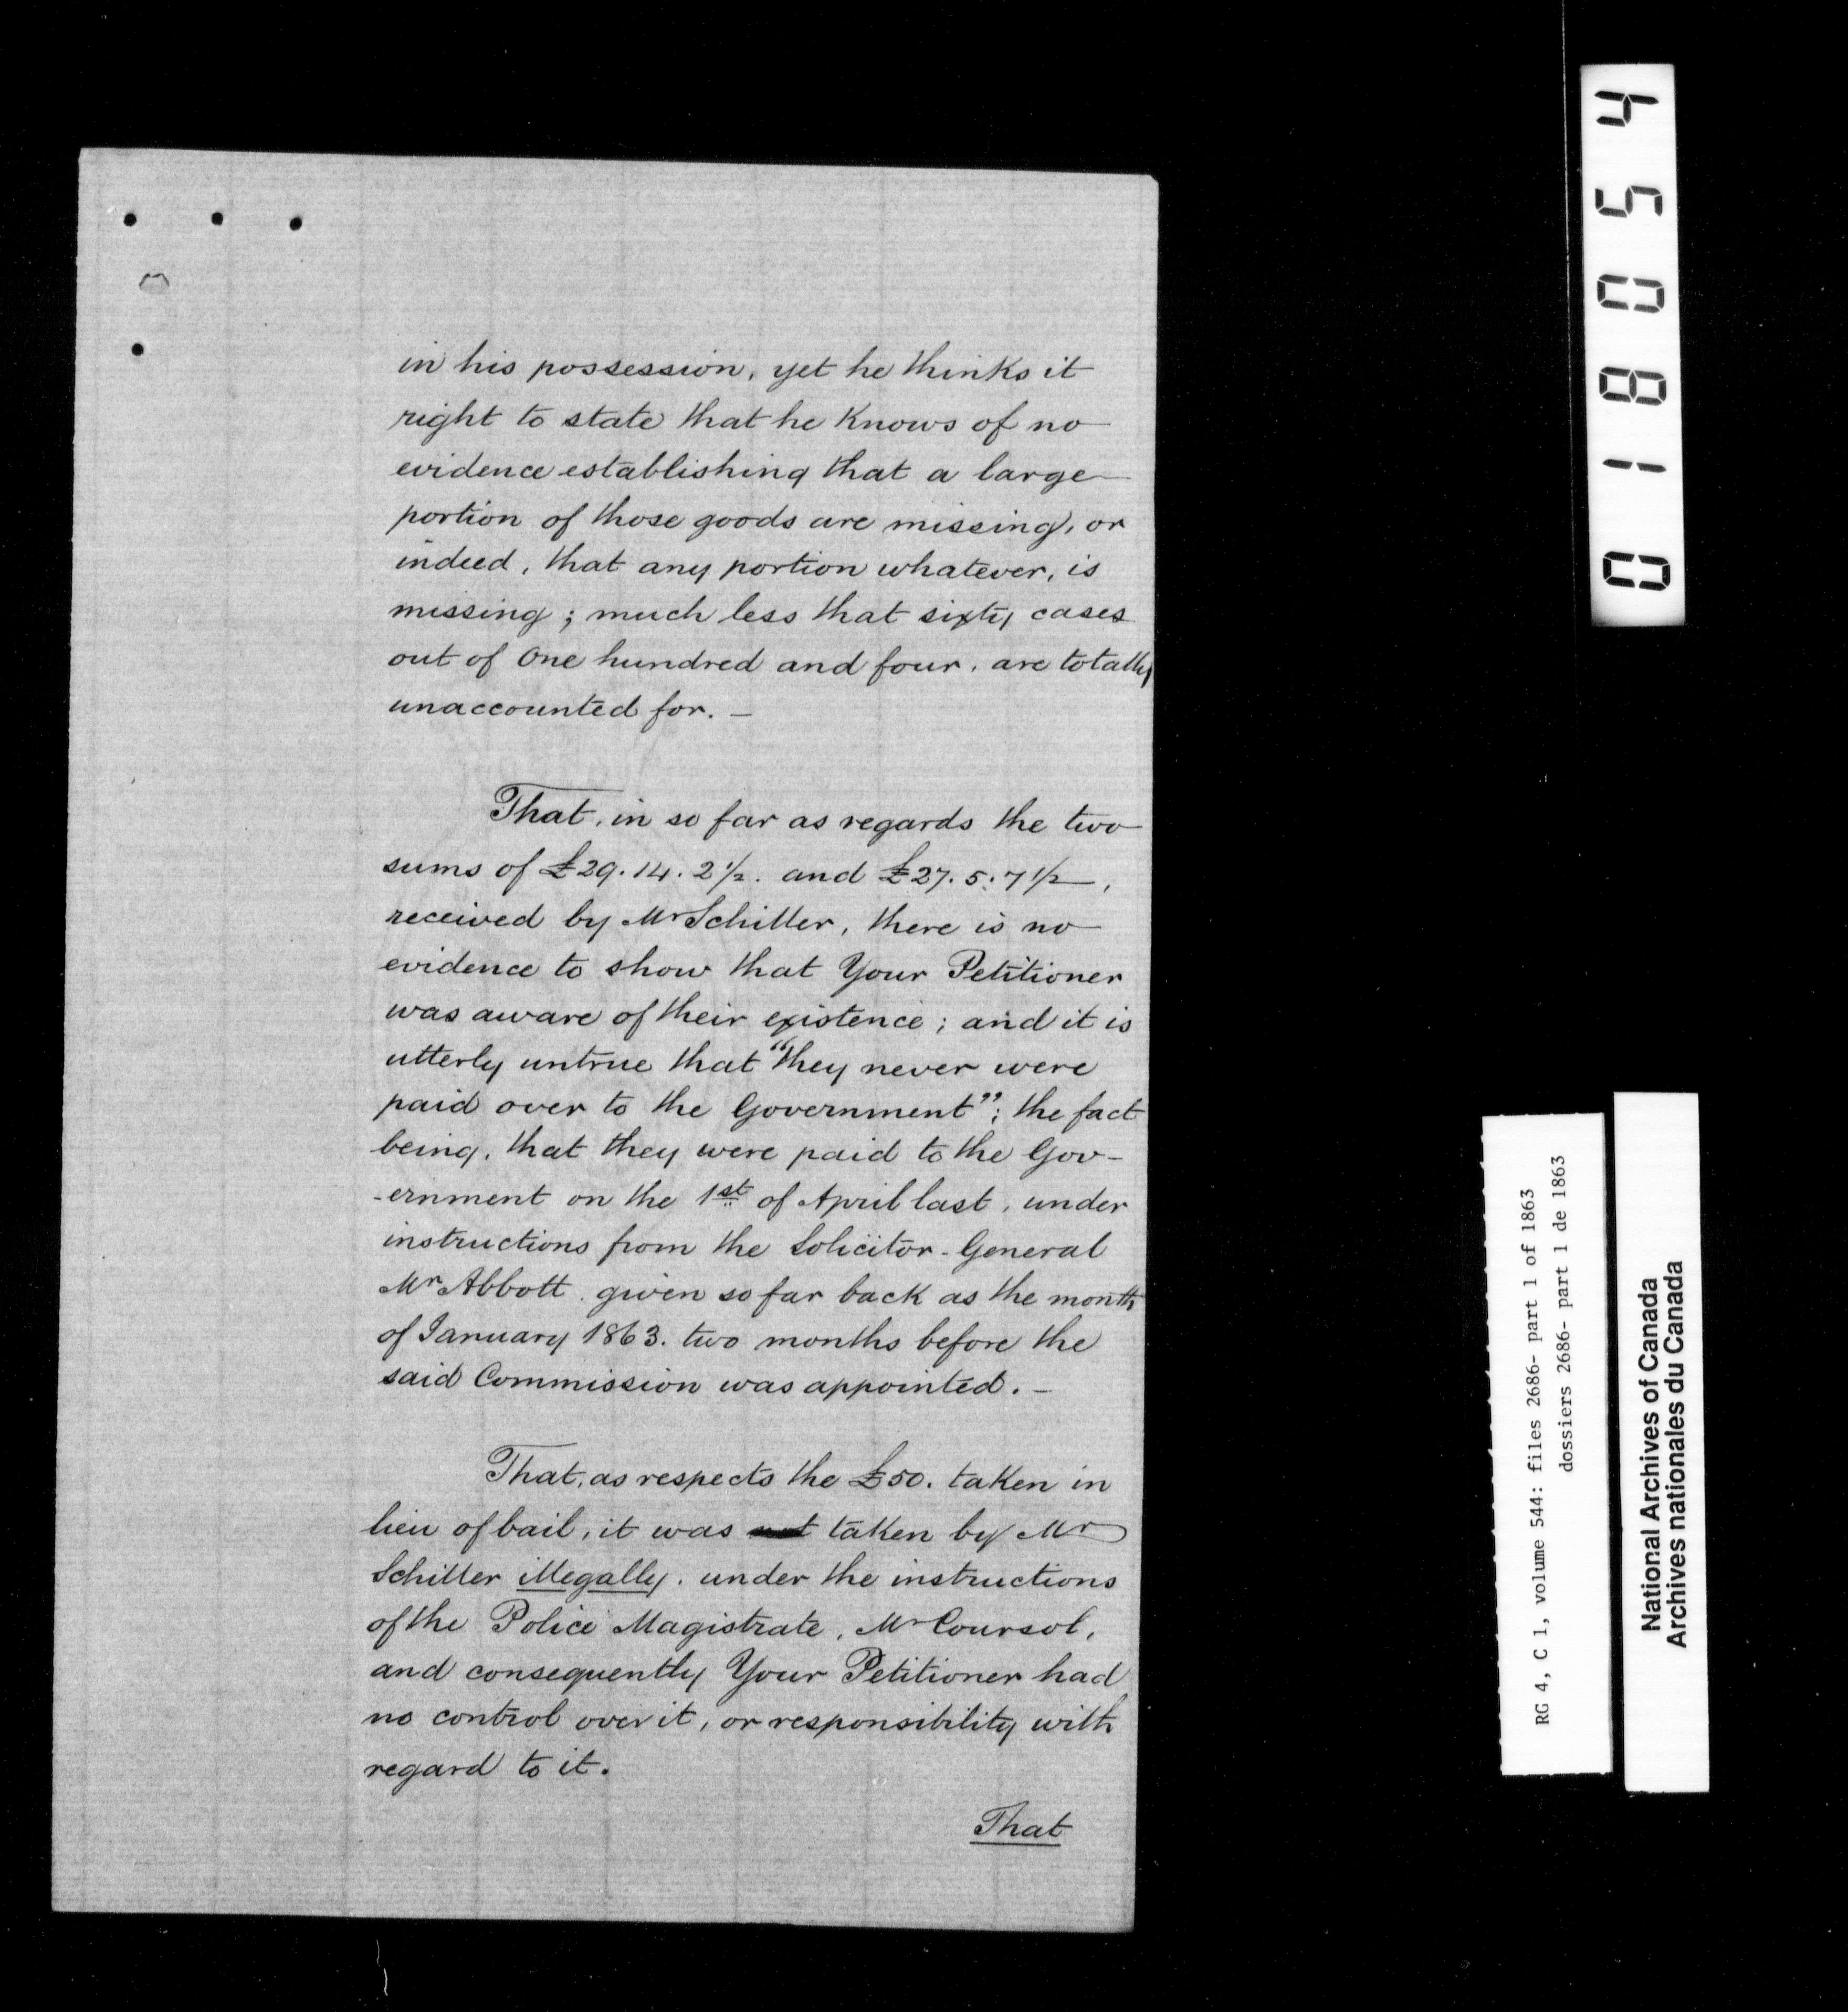 in his possession, yet he thinks it
right to state that he Knows of no
evidence establishing that a large
portion of those goods are missing, or
indeed, that any portion whatever, is
missing; much less that sixty cases
out of One hundred and four, are totally
unaccounted for. —
That, in so far as regards the two
sums of £29.14.2½. and £27.5:7½,
received by Mr Schiller, there is no
evidence to show that Your Petitioner
was aware of their existence; and it is
utterly untrue that "they never were
paid over to the Government"; the fact
being, that they were paid to the Gov-
-ernment on the 1st of April last, under
instructions from the Solicitor-General
Mr Abbott, given so far back as the month
of January 1863. two months before the
said Commission was appointed. —
That, as respects the £50. taken in
lieu of bail, it was not taken by Mr
Schiller illegally, under the instructions
of the Police Magistrate, Mr Coursol,
and consequently Your Petitioner had
no control over it, or responsibility with
regard to it.
That
018054
RG 4, C 1, volume 544: files 2686- part 1 of 1863
dossiers 2686- part 1 de 1863
National Archives of Canada
Archives nationales du Canada